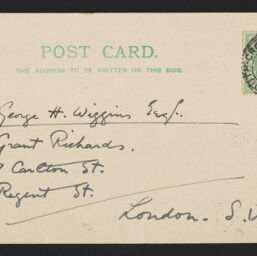 POST CARD.
THE ADDRESS TO BE WRITTEN ON THIS SIDE.
George H. Wiggins Esq.
Grant Richards.
Carlton St.
Regent St.
London. S.